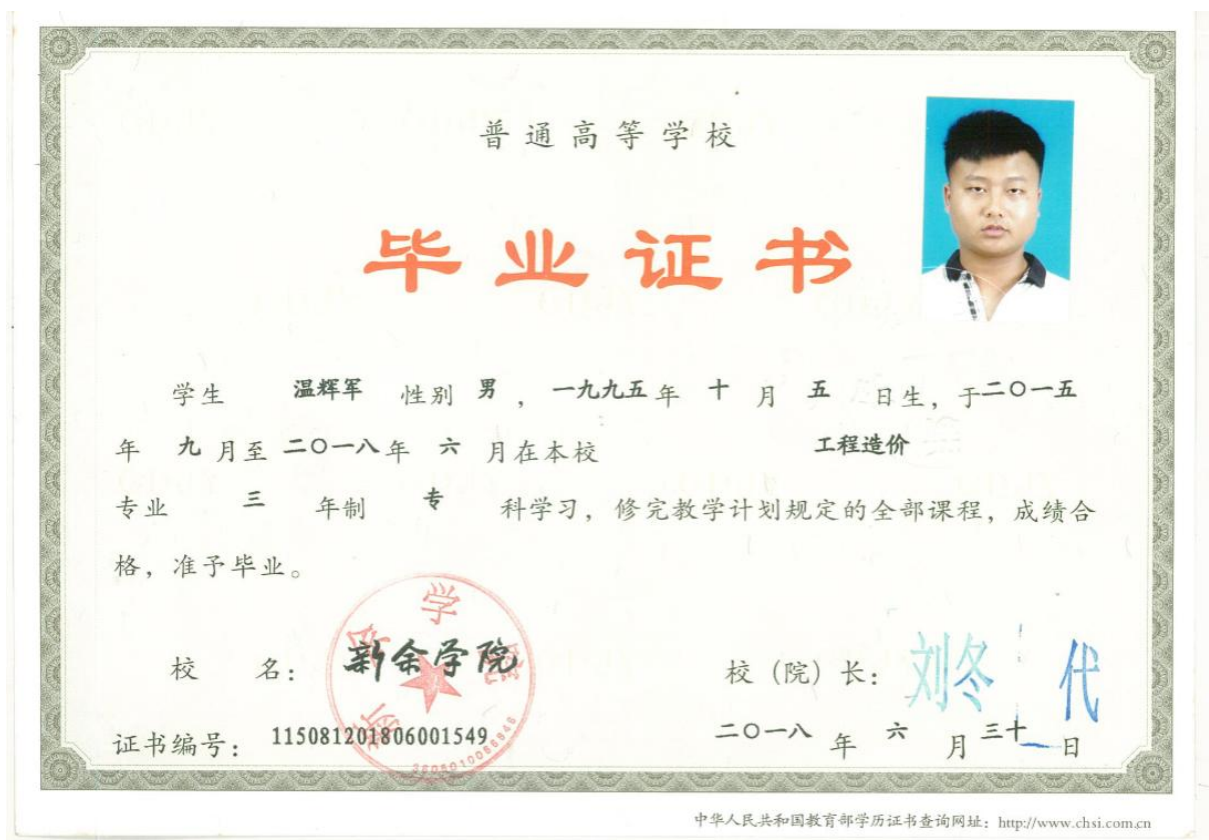 普通高等学校
毕业证书
学生 温辉军 性别 男 ，一九九五 年 十 月 五 日生，于二〇一五
年 九 月至 二〇一八 年 六 月在本校 工程造价
专业 三 年制 专 科学习，修完教学计划规定的全部课程，成绩合
格，准予毕业。
新余学院
校 名： 新余学院 校（院）长： 刘冬 代
证书编号： 115081201806001549 二〇一八 年 六 月 三十 日
中华人民共和国教育部学历证书查询网址：http://www.chsi.com.cn